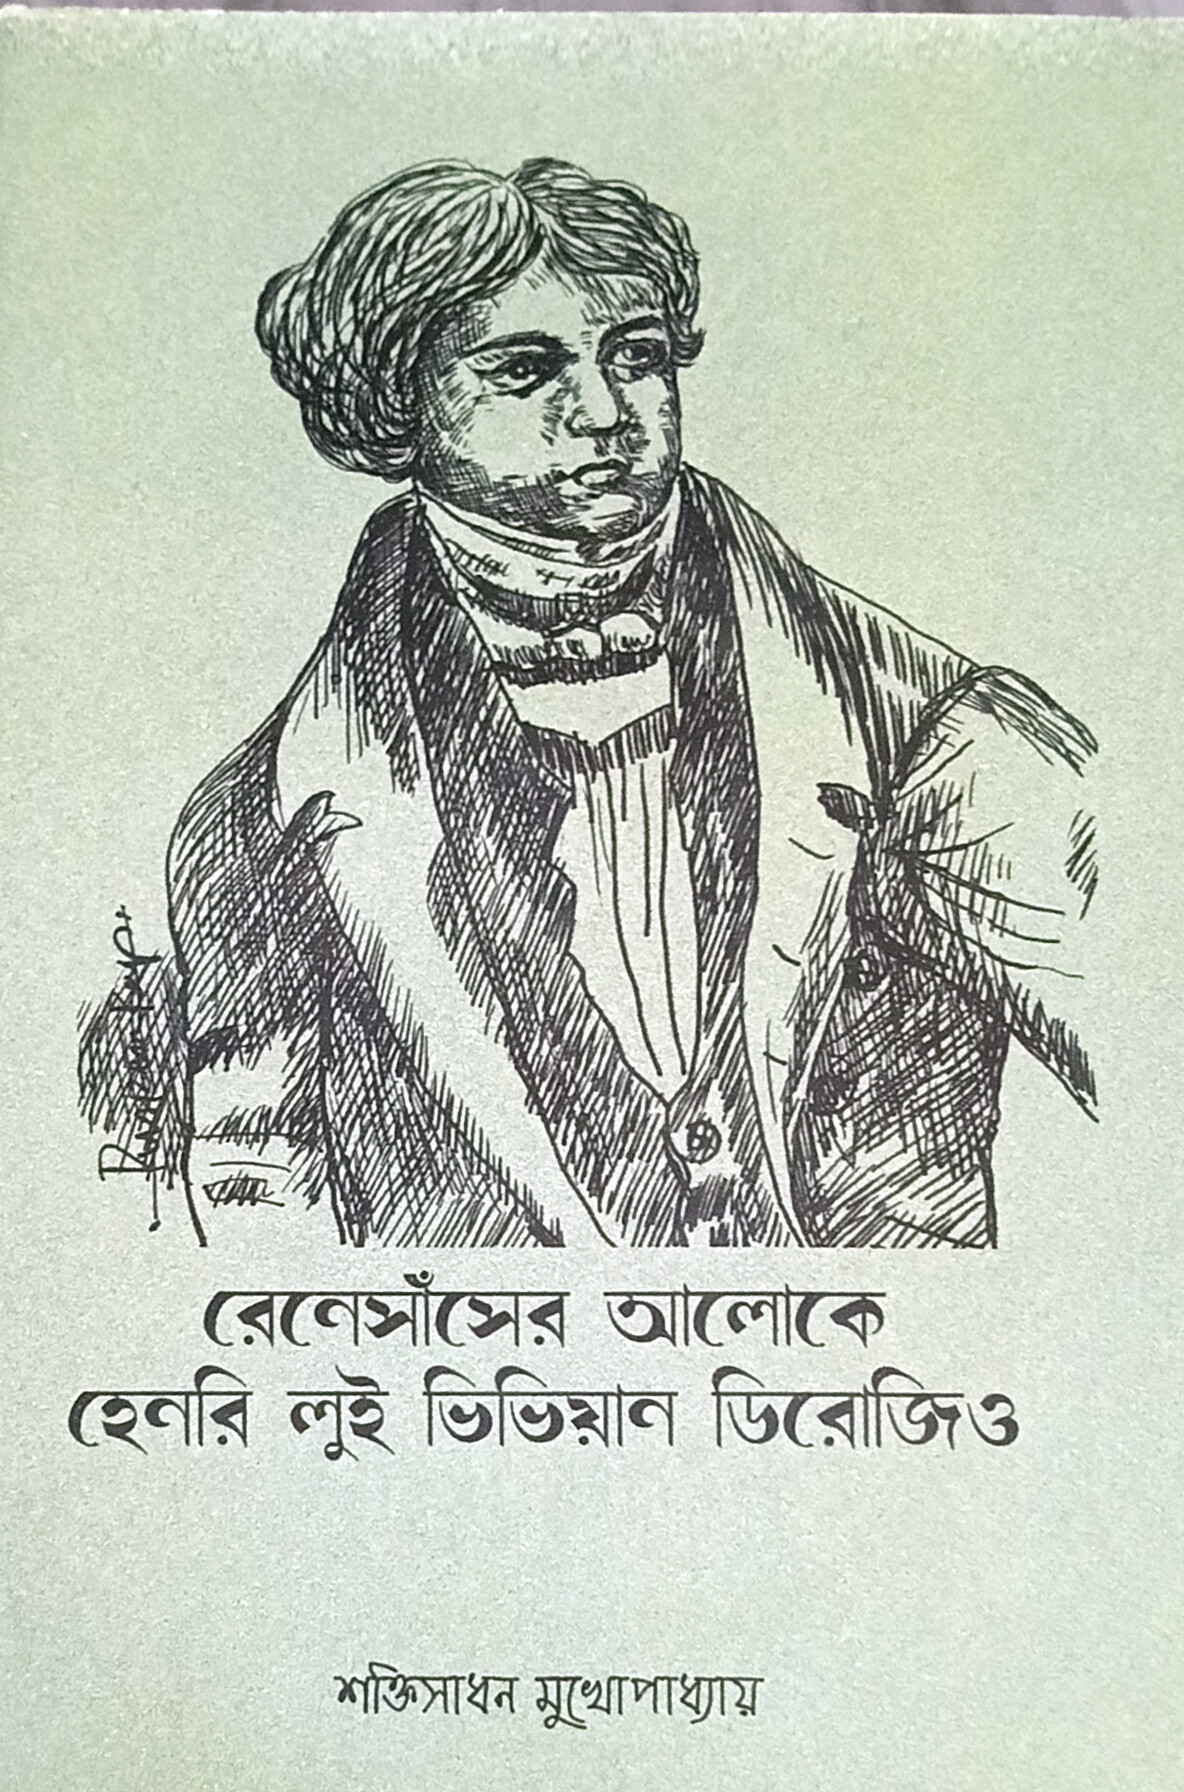 রেনেসাঁসের আলোকে
হেনরি লুই ভিভিয়ান ডিরোজিও
শক্তিসাধন মুখোপাধ্যায়